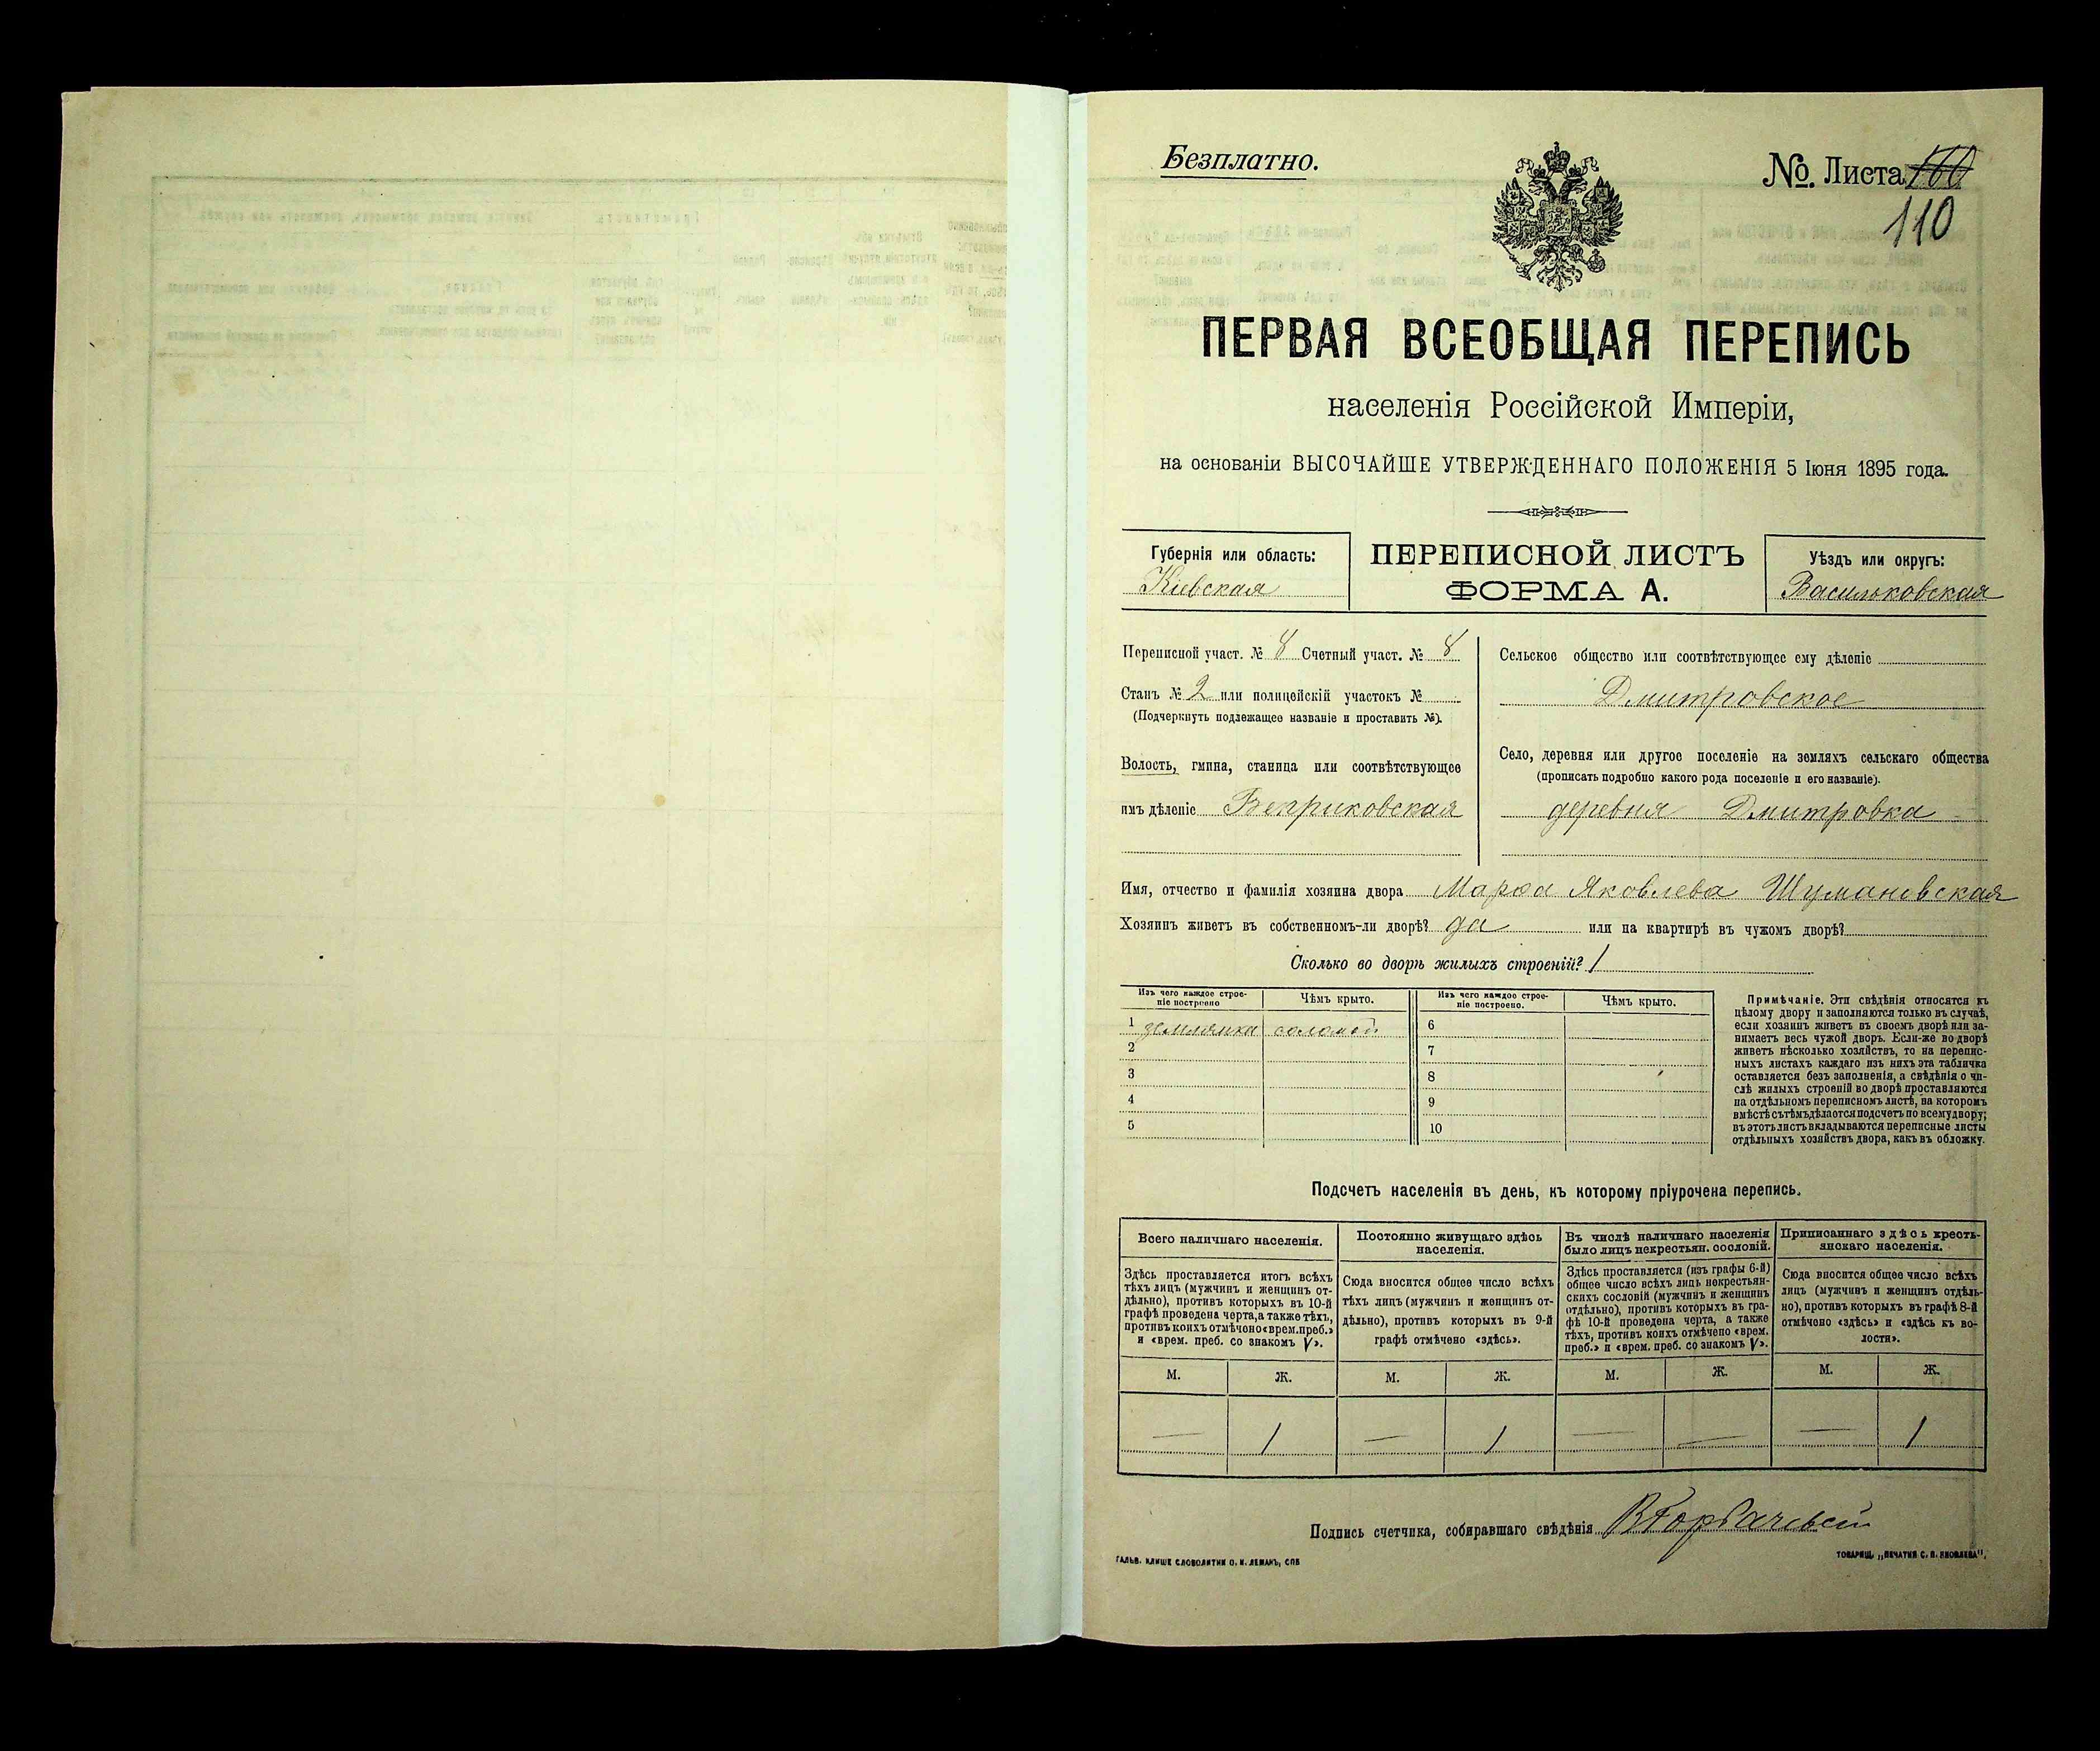 Безплатно.
№. Листа 160
110
ПЕРВАЯ ВСЕОБЩАЯ ПЕРЕПИСЬ
населенія Россійской Имперіи,
на основаніи ВЫСОЧАЙШЕ УТВЕРЖДЕННАГО ПОЛОЖЕНІЯ 5 Іюня 1895 года.
Губернія или область:
Кіевская
ПЕРЕПИСНОЙ ЛИСТЪ
ФОРМА А.
Уѣздъ или округъ:
Васильковская
Переписной участ. № 8 Счетный участ. № 8
Станъ № 2 или полицейскій участокъ №
(Подчеркнуть подлежащее названіе и проставить №).
Волость, гмина, станица или соотвѣтствующее
имъ дѣленіе Веприковская
Сельское общество или соотвѣтствующее ему дѣленіе
Дмитровское
Село, деревня или другое поселеніе на земляхъ сельскаго общества
(прописать подробно какого рода поселеніе и его названіе).
деревня Дмитровка
Имя, отчество и фамилія хозяина двора Марѳа Яковлева Шумановская
Хозяинъ живетъ въ собственномъ-ли дворѣ? да или на квартирѣ въ чужомъ дворѣ?
Сколько во дворѣ жилыхъ строеній? 1
Изъ чего каждое строе-
ніе построено
Чѣмъ крыто.
Изъ чего каждое строе-
ніе построено.
Чѣмъ крыто.
1 землянка соломой
2
3
4
5
6
7
8
9
10
Примѣчаніе. Эти свѣдѣнія относятся къ
цѣлому двору и заполняются только въ случаѣ,
если хозяинъ живетъ въ своемъ дворѣ или за-
нимаетъ весь чужой дворъ. Если-же во дворѣ
живетъ нѣсколько хозяйствъ, то на перепис-
ныхъ листахъ каждаго изъ нихъ эта табличка
оставляется безъ заполненія, а свѣдѣнія о чи-
слѣ жилыхъ строеній во дворѣ проставляются
на отдѣльномъ переписномъ листѣ, на которомъ
вмѣстѣ съ тѣмъ дѣлается подсчетъ по всему двору;
въ этотъ листъ вкладываются переписные листы
отдѣльныхъ хозяйствъ двора, какъ въ обложку.
Подсчетъ населенія въ день, къ которому пріурочена перепись.
Всего наличнаго населенія.
Постоянно живущаго здѣсь
населенія.
Въ числѣ наличнаго населенія
было лицъ некрестьян. сословій.
Приписаннаго здѣсь кресть-
янскаго населенія.
Здѣсь проставляется итогъ всѣхъ
тѣхъ лицъ (мужчинъ и женщинъ от-
дѣльно), противъ которыхъ въ 10-й
графѣ проведена черта, а также тѣхъ,
противъ коихъ отмѣчено «врем. преб.»
и «врем. преб. со знакомъ V».
Сюда вносится общее число всѣхъ
тѣхъ лицъ (мужчинъ и женщинъ от-
дѣльно), противъ которыхъ въ 9-й
графѣ отмѣчено «здѣсь».
Здѣсь проставляется (изъ графы 6-й)
общее число всѣхъ лицъ некрестьян-
скихъ сословій (мужчинъ и женщинъ
отдѣльно), противъ которыхъ въ гра-
фѣ 10-й проведена черта, а также
тѣхъ, противъ коихъ отмѣчено «врем.
преб.» и «врем. преб. со знакомъ V».
Сюда вносится общее число всѣхъ
лицъ (мужчинъ и женщинъ отдѣль-
но), противъ которыхъ въ графѣ 8-й
отмѣчено «здѣсь» и «здѣсь къ во-
лости».
М. Ж. М. Ж. М. Ж. М. Ж.
— 1 — 1 — — — 1
Подпись счетчика, собиравшаго свѣдѣнія В Горбачевскій
ГАЛЬВ. КЛИШЕ СЛОВОЛИТНИ О. И. ЛЕМАНЪ, СПБ
ТОВАРИЩ. „ПЕЧАТНЯ С. П. ЯКОВЛЕВА".